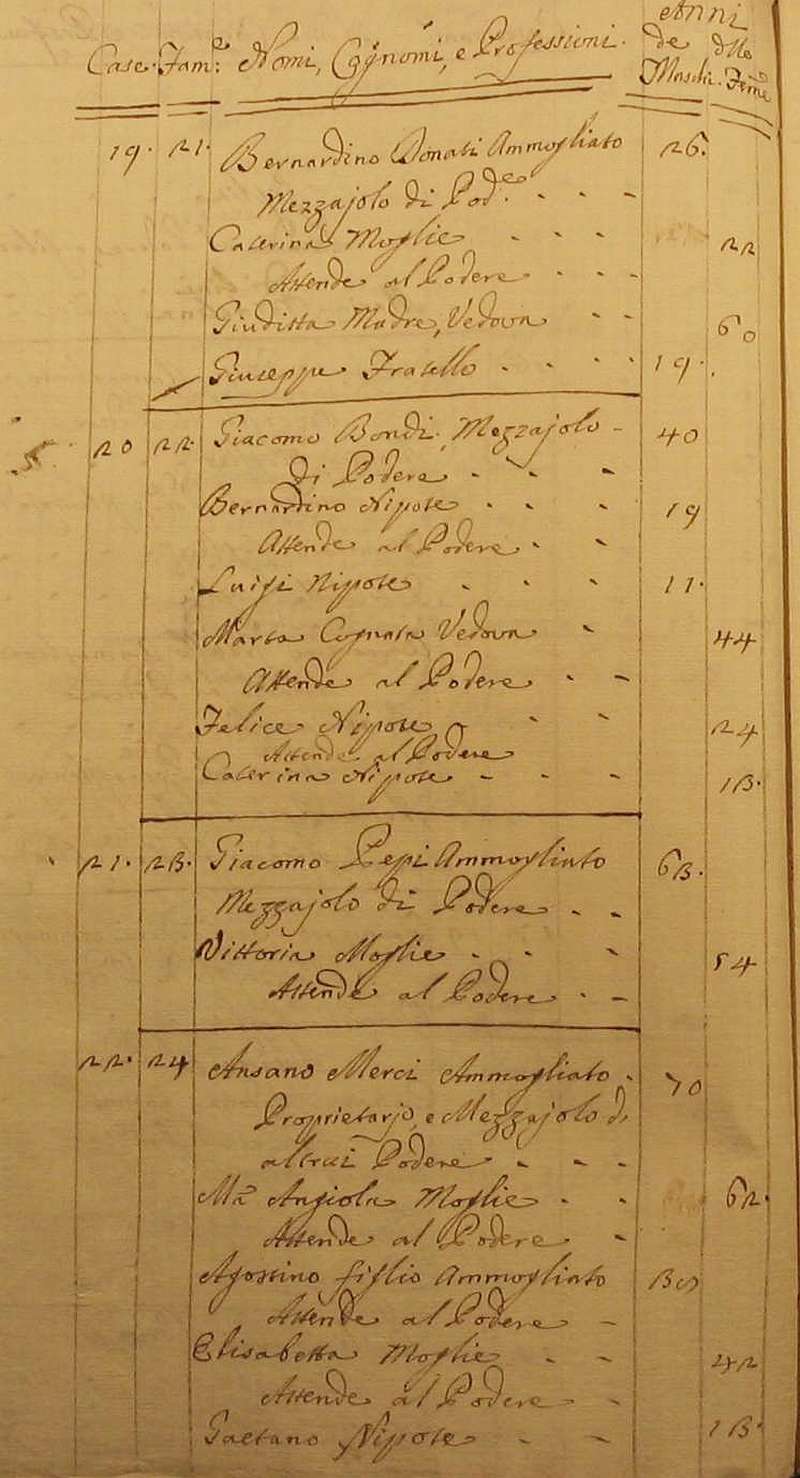 Anni
Case. Fam:e Nomi, Cognomi, e Professioni. de Maschi. dlle Fem:e
19. 21. Bernardino Donati Ammogliato 26.
Mezzajolo di Pod:e
Caterina Moglie 22
Attende al Podere
Giuditta Madre, Vedova 60
Giuseppe Fratello 19.
20 22. Giacomo Bondi, Mezzajolo 40
di Podere
Bernardino Nipote 19
Attende al Podere
Luigi Nipote 11.
Marta Cognata Vedova 44
Attende al Podere
Felice Nipote 24
Attende al Podere
Caterina Nipote 13.
21. 23. Giacomo Pepi Ammogliato 63.
Mezzajolo di Podere
Vittoria Moglie 54
Attende al Podere
22. 24 Ansano Merci Ammogliato 70
Proprietarjo, e Mezzajolo di
altrui Podere
Ma Angiola Moglie 62.
Attende al Podere
Agostino figlio Ammogliato
Attende al Podere
Elisabetta Moglie 42
Attende al Podere
Gaetano Nipote 13.